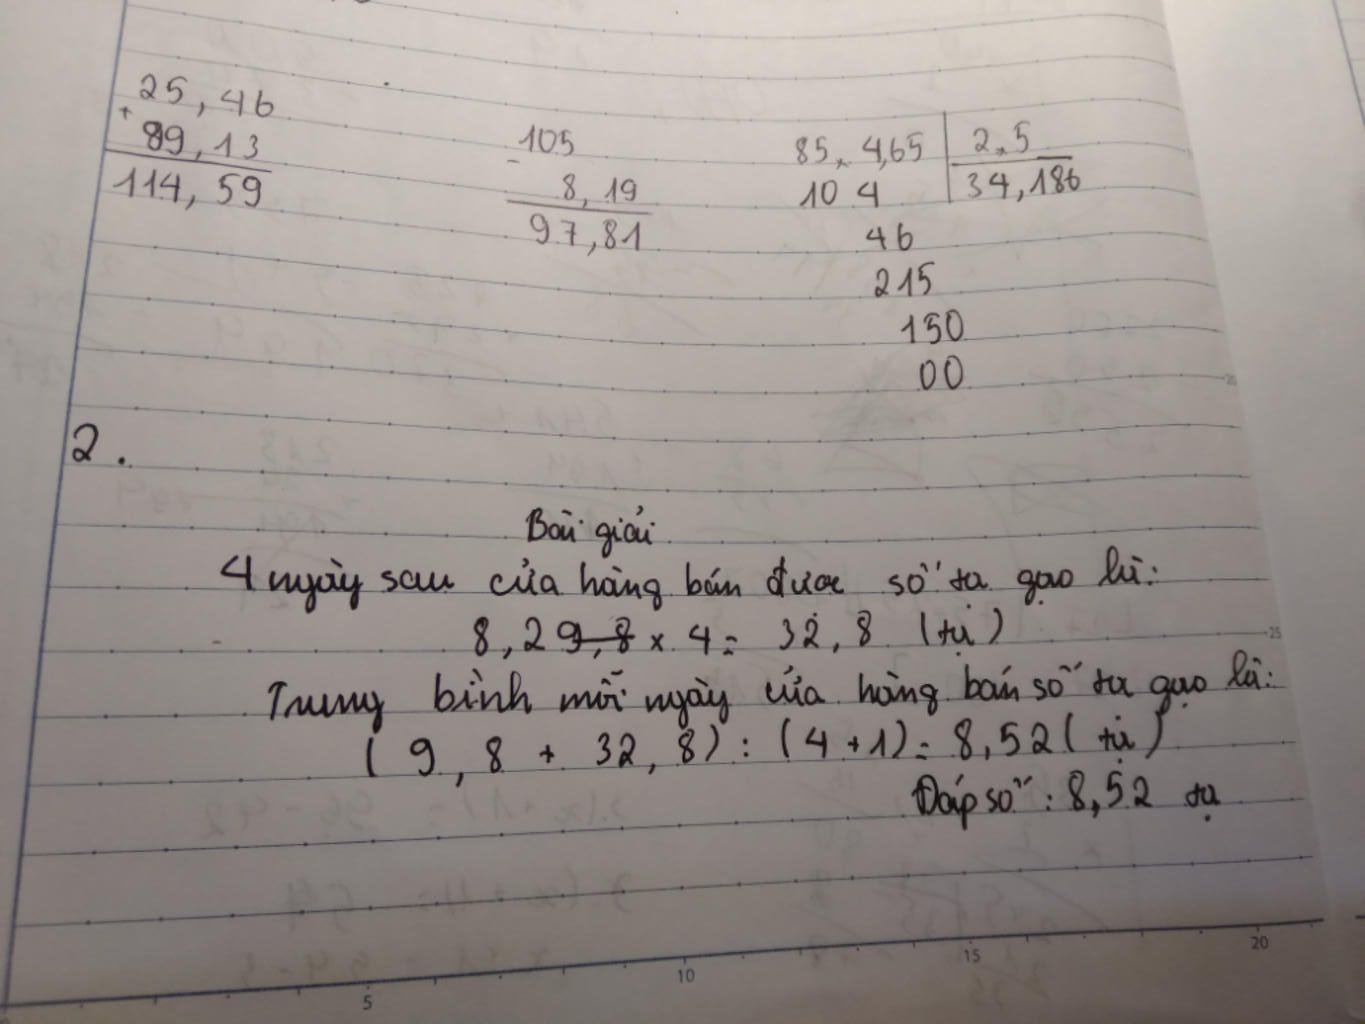 25,46
+
89,13
114,59
105
-
8,19
97,81
85,4,65 2,5
10 4 34,186
46
215
150
00
2.
Bài giải
4 ngày sau cửa hàng bán được số tạ gạo là:
8,2 9,8 x 4 = 32,8 (tạ)
Trung bình mỗi ngày cửa hàng bán số tạ gạo là:
(9,8 + 32,8) : (4+1) = 8,52 (tạ)
Đáp số : 8,52 tạ
5
10
15
20
25